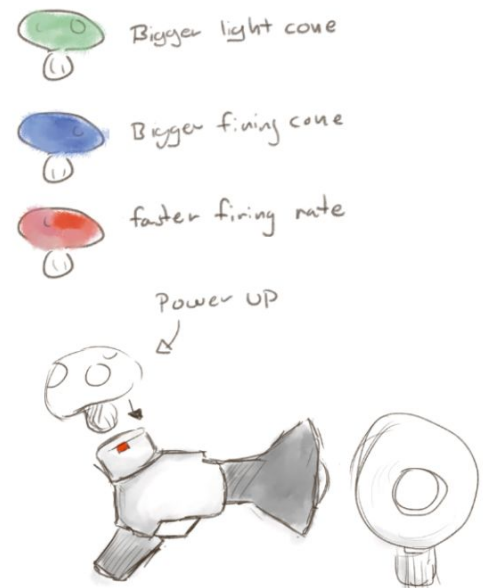 Bigger light cone
Bigger firing cone
faster firing rate
Power UP